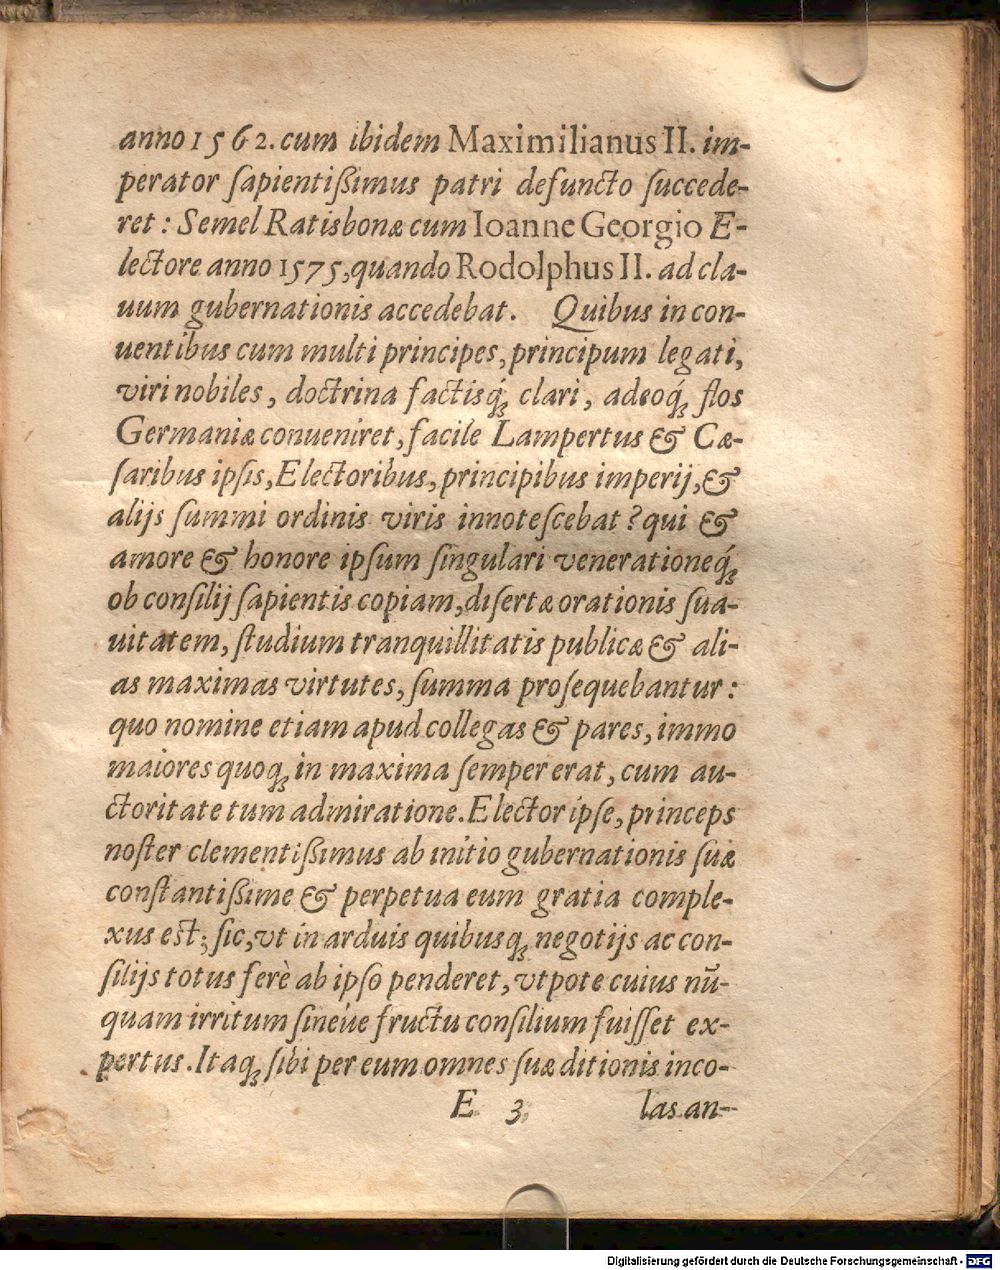 anno 1562. cum ibidem Maximilianus II. im-
perator ſapientißimus patri defuncto ſuccede-
ret: Semel Ratisbonæ cum Ioanne Georgio E-
lectore anno 1575, quando Rodolphus II. ad cla-
uum gubernationis accedebat. Quibus in con-
uentibus cum multi principes, principum legati,
viri nobiles, doctrina factisq́; clari, adeoq́; flos
Germaniæ conueniret, facile Lampertus & Cæ-
ſaribus ipſis, Electoribus, principibus imperij, &
alijs ſummi ordinis viris innoteſcebat? qui &
amore & honore ipſum ſingulari venerationeq́;
ob conſilij ſapientis copiam, diſertæ orationis ſua-
uitatem, ſtudium tranquillitatis publicæ & ali-
as maximas virtutes, ſumma proſequebantur:
quo nomine etiam apud collegas & pares, immo
maiores quoq; in maxima ſemper erat, cum au-
ctoritate tum admiratione. Elector ipſe, princeps
noſter clementißimus ab initio gubernationis ſuæ
conſtantißime & perpetua eum gratia comple-
xus est; ſic, vt in arduis quibusq; negotijs ac con-
ſilijs totus ferè ab ipſo penderet, vtpote cuius nū-
quam irritum ſineúe fructu conſilium fuiſſet ex-
pertus. Itaq; ſibi per eum omnes ſuæ ditionis inco-
E 3 las an-
Digitalisierung gefördert durch die Deutsche Forschungsgemeinschaft - DFG